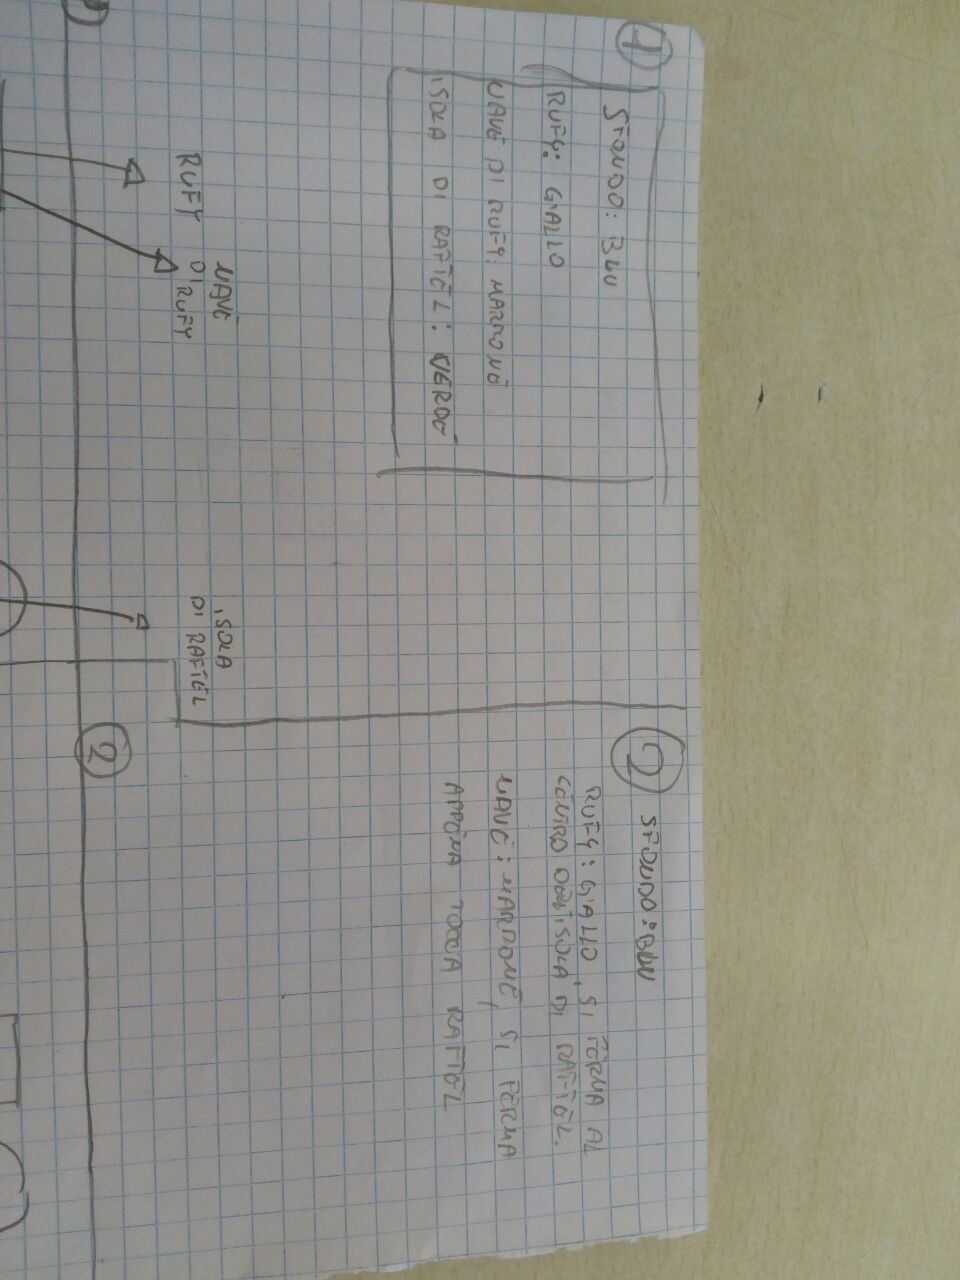 1
SFONDO: BLU
RUFY: GIALLO
NAVE DI RUFY: MARRONE
ISOLA DI RAFTEL: VERDE
2 SFONDO: BLU
RUFY: GIALLO, SI FERMA AL
CENTRO DELL'ISOLA DI RAFTEL.
NAVE: MARRONE, SI FERMA
APPENA TOCCA RAFTEL
RUFY
NAVE
DI RUFY
ISOLA
DI RAFTEL
2